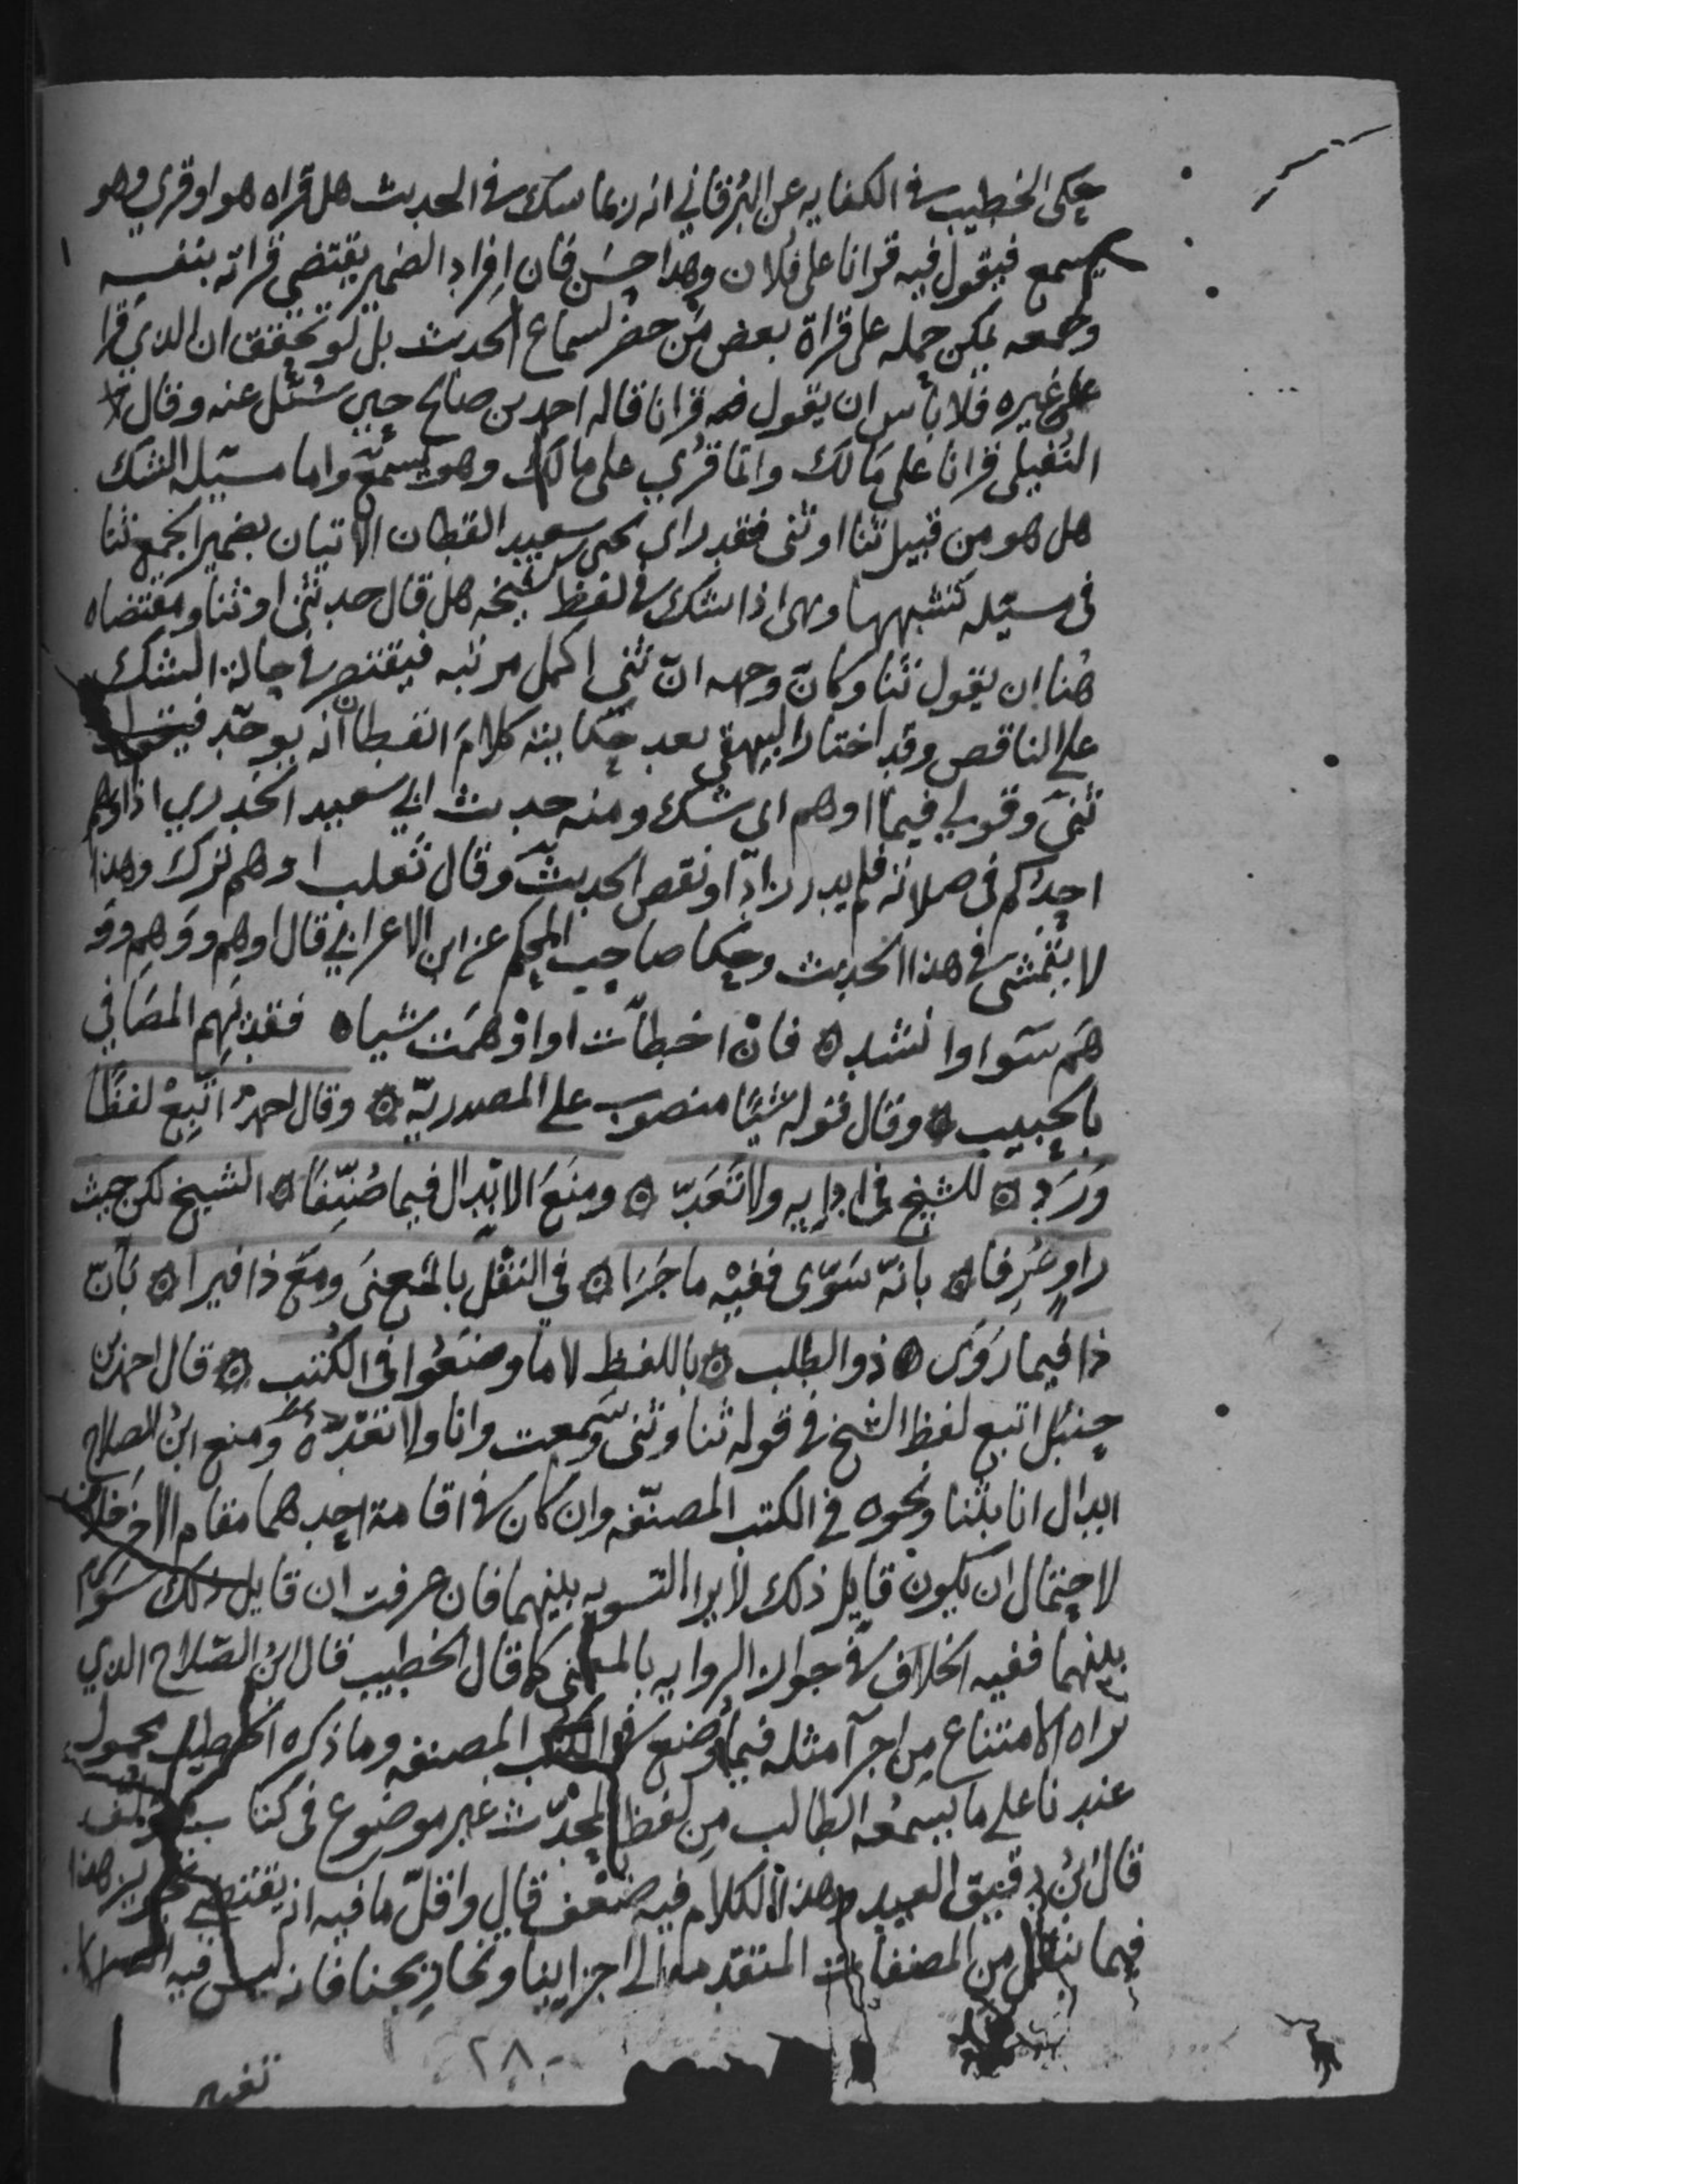 حكى الخطيب في الكفايه عن البرقاني انه ربما شك في الحديث هل قراه هو او قري وهو
يسمع فيقول فيه قرانا على فلان وهذا حسن فان افراد الضمير يقتضي قراته بنفسه
وجمعه يمكن حمله على قراة بعض من حضر لسماع الحديث بل لو تحقق ان الذي قرا
على غيره فلا بأس ان يقول فيه قرانا قاله احمد بن صالح حين سئل عنه وقال
النفيلي قرانا على مالك وانما قري على مالك وهو يسمع واما مسيله الشك
هل هو من قبيل ثنا او ثنى فقد راى يحيى بن سعيد القطان الاتيان بضمير الجمع ثنا
في مسيله تشبهها وهى اذا شك في لفظ شيخه هل قال حدثنى او ثنا ومقتضاه
هنا ان يقول ثنا وكان وجهه ان ثني اكمل مرتبه فيقتصر في حالة الشك
على الناقص وقد اختار البيهقي بعد حكايته كلام القطان انه يوحد فيقول
ثنى وقولي فيما اوهم اى شك ومنه حديث ابي سعيد الخدري اذا وهم
احدكم في صلاته فلم يدر زاد او نقص الحديث وقال ثعلب اوهم ترك وهذا
لا يتمشى في هذا الحديث وحكا صاحب المحكم عن ابن الاعرابي قال اوهم ووهم وو
هم سوا وانشد ۞ فان اخطأت او اوهمت شيا ۞ فقد يهم المصافي
بالحبيب ۞ وقال قوله شيئا منصوب على المصدرية ۞ وقال احمد اتبع لفظا
ورد ۞ للشيخ في ادايه ولا تعد ۞ ومنع الابدال فيما صنفا ۞ الشيخ لكن حيث
راو عرفا ۞ بانه سوى ففيه ما جرا ۞ في النقل بالمعنى ومع ذا فيرا ۞ بان
ذا فيما روى ۞ ذو الطلب ۞ باللفظ لا ما وضعوا في الكتب ۞ قال احمد بن
حنبل اتبع لفظ الشيخ في قوله ثنا وثنى وسمعت وانا ولا تعده ومنع ابن الصلاح
ابدال انا بثنا ونحوه في الكتب المصنفه وان كان في اقامة احدهما مقام الاخر خلاف
لاحتمال ان يكون قايل ذلك لا يرا التسويه بينهما فان عرفت ان قايل ذلك سوى
بينهما ففيه الخلاف في جواز الروايه بالمعنى كما قال الخطيب قال ابن الصلاح الذي
نراه الامتناع من اجرآ مثله فيما وضع في الكتب المصنفه وما ذكره الخطيب محمول
عندنا على ما يسمعه الطالب من لفظ المحدث غير موضوع في كتاب مؤلف
قال بن دقيق العيد وهذا الكلام فيه ضعف قال واقل ما فيه انه يقتضي تجويز هذا
فيما ينقل من المصنفات المتقدمه الى اجزاينا وتخاريجنا فانه ليس فيه
٢٨٠
تغيير